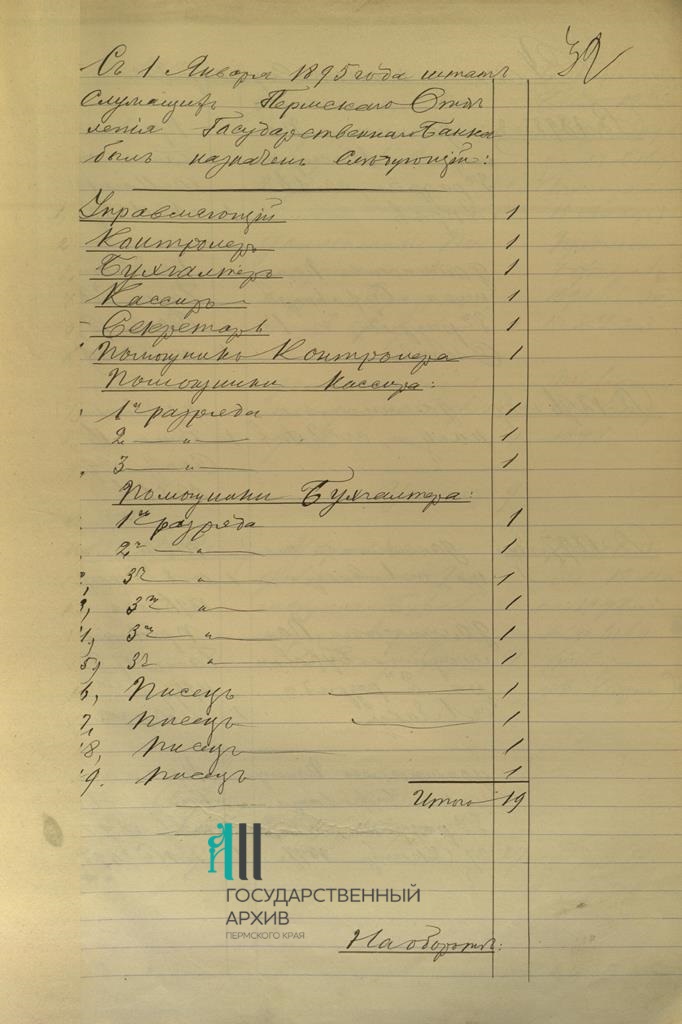 39
Съ 1 Января 1895 года штатъ
служащихъ Пермскаго Отдѣ
ленія Государственнаго Банка
былъ назначенъ слѣдующій:
Управляющій 1
Контролеръ 1
Бухгалтеръ 1
Кассиръ 1
Секретарь 1
Помощникъ Контролера 1
Помощники Кассира:
1го разряда 1
2 — " — 1
3 — " — 1
Помощники Бухгалтера:
1го разряда 1
2го — " — 1
3го — " — 1
3го — " — 1
3го — " — 1
5, 3го — " — 1
6, Писецъ — 1
7, Писецъ — 1
18, Писецъ — 1
19. Писецъ 1
Итого 19
ГОСУДАРСТВЕННЫЙ
АРХИВ
ПЕРМСКОГО КРАЯ
На оборотѣ: